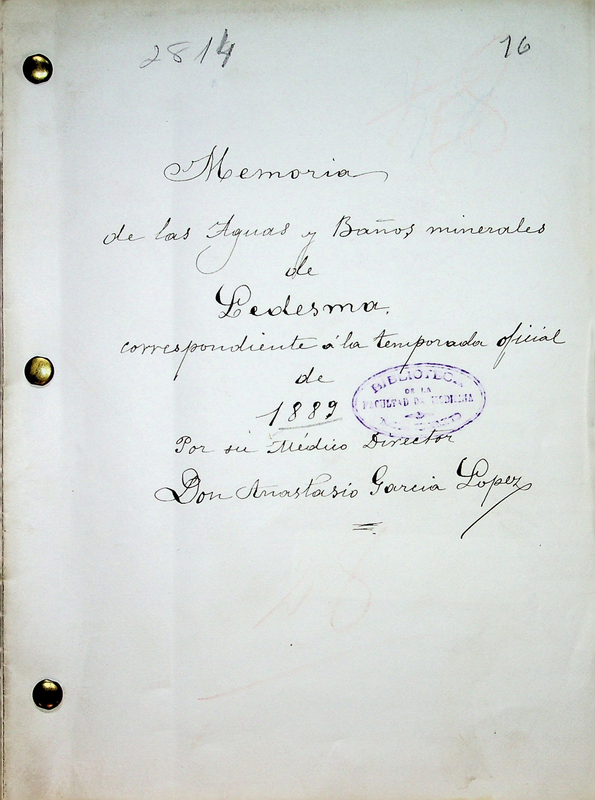 2814
76
Memoria
de las Aguas y Baños minerales
de
Ledesma.
correspondiente á la temporada oficial
de
1889
BIBLIOTECA
DE LA
FACULTAD DE MEDICINA
Por su Médico Director
Don Anastasio Garcia Lopez